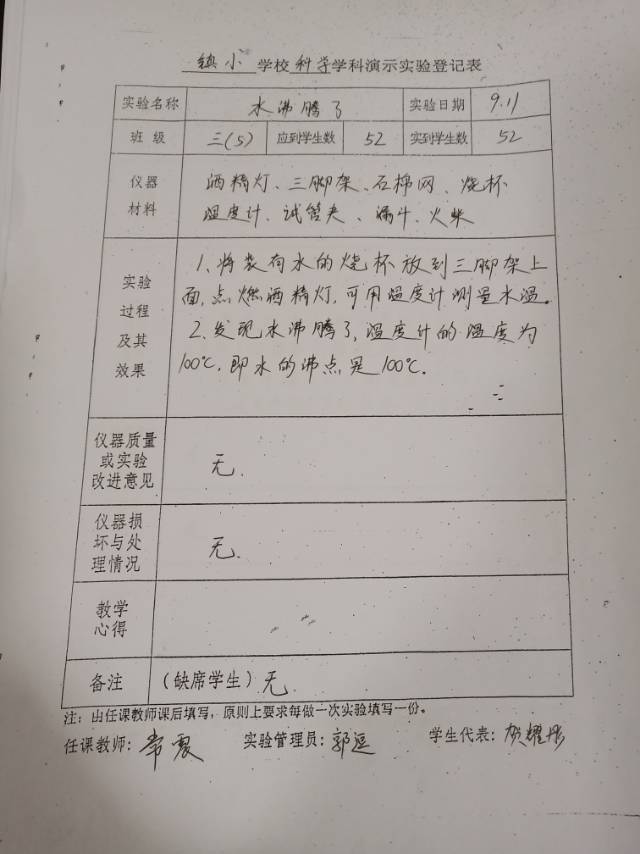 镇小 学校 科学 学科演示实验登记表
实验名称 水沸腾了 实验日期 9.11
班 级 三(5) 应到学生数 52 实到学生数 52
仪器
材料
酒精灯、三脚架、石棉网、烧杯
温度计、试管夹、漏斗、火柴
实验
过程
及其
效果
1、将装有水的烧杯放到三脚架上
面,点燃酒精灯,可用温度计测量水温。
2、发现水沸腾了,温度计的温度为
100℃,即水的沸点是100℃.
仪器质量
或实验
改进意见
无.
仪器损
坏与处
理情况
无.
教学
心得
备注 (缺席学生) 无.
注: 由任课教师课后填写,原则上要求每做一次实验填写一份。
任课教师: 常 实验管理员: 郭 学生代表: 贺耀彤